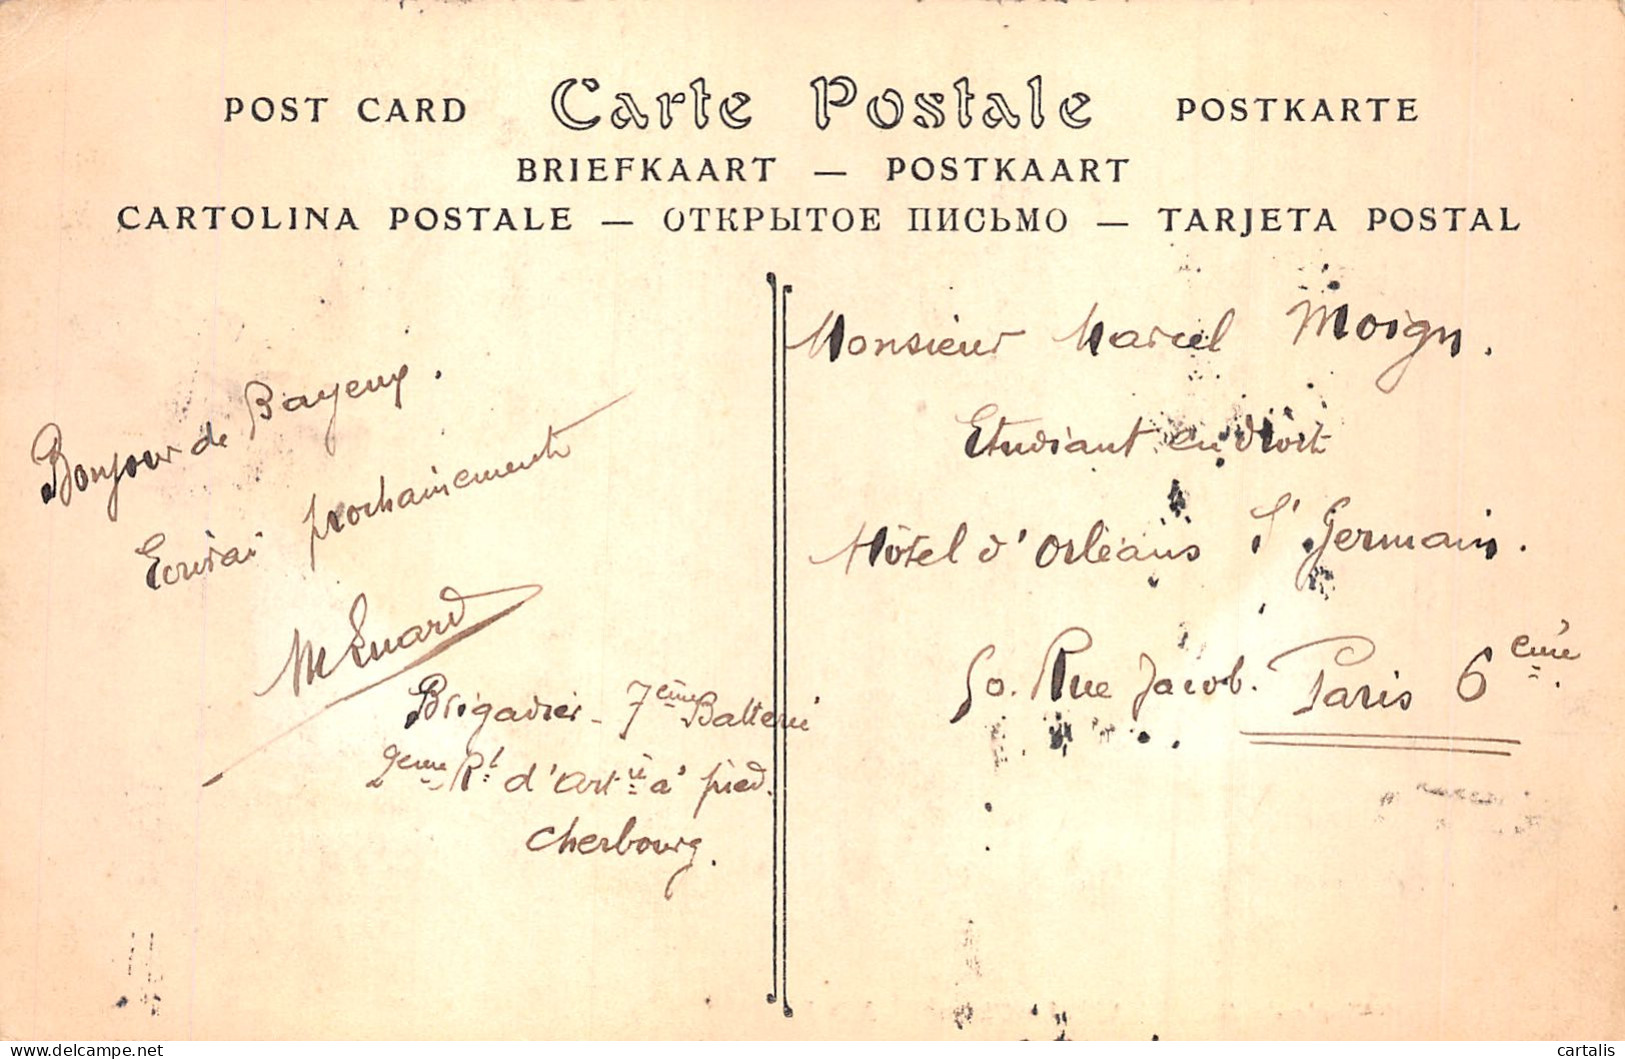 POST CARD Carte Postale POSTKARTE
BRIEFKAART — POSTKAART
CARTOLINA POSTALE — ОТКРЫТОЕ ПИСЬМО — TARJETA POSTAL
Bonjour de Bayeux.
Ecrirai prochainement
MEnard
Brigadier - 7ème Batterie
2eme Rt d'Artie à pied.
Cherbourg.
Monsieur Marcel Moign.
Etudiant en droit
Hôtel d'Orléans St Germain.
50. Rue Jacob. Paris 6eme
delcampe.net
cartalis